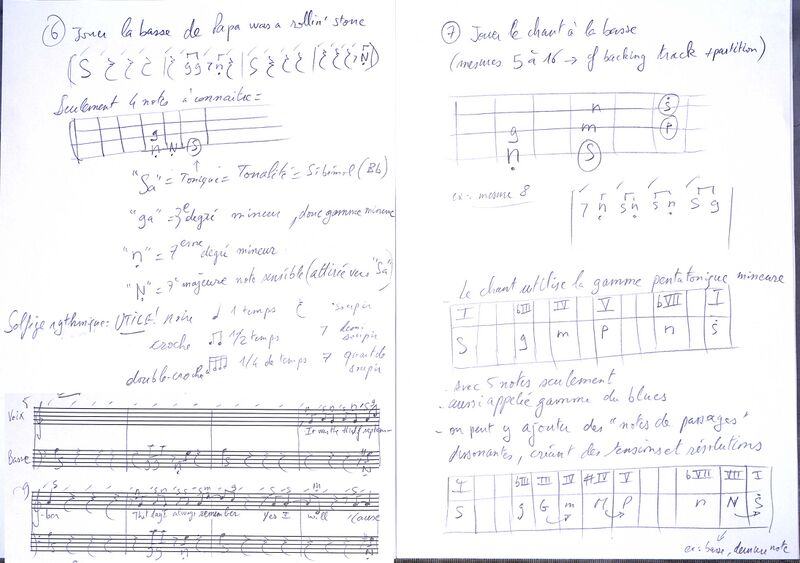 6 Jouer la basse de Papa was a rollin' stone
Seulement 4 notes à connaitre =
g
n N S
"Sa" = Tonique = Tonalité = Si bémol (Bb)
"ga" = 3e degré mineur, donc gamme mineure
"n" = 7eme degré mineur
"N" = 7e majeure note sensible (attirée vers "Sa")
Solfège rythmique: UTILE! noire 1 temps soupir
croche 1/2 temps 7 demi soupir
double-croche 1/4 de temps 7 quart de soupir
5
Voix
It was the third septem-
Basse
9
-ber That day I always remember Yes I will 'cause
7 Jouer le chant à la basse
(mesures 5 à 16 → cf backing track + partition)
n S
g m P
n S
ex: mesure 8
7 n S n S n S g
- Le chant utilise la gamme pentatonique mineure
I bIII IV V bVII I
S g m P n S
- Avec 5 notes seulement
- aussi appelée gamme du blues
- on peut y ajouter des "notes de passages"
dissonantes, créant des tensions et résolutions
I bIII III IV #IV V bVII VII I
S g G m M P n N S
ex: basse, dernière note